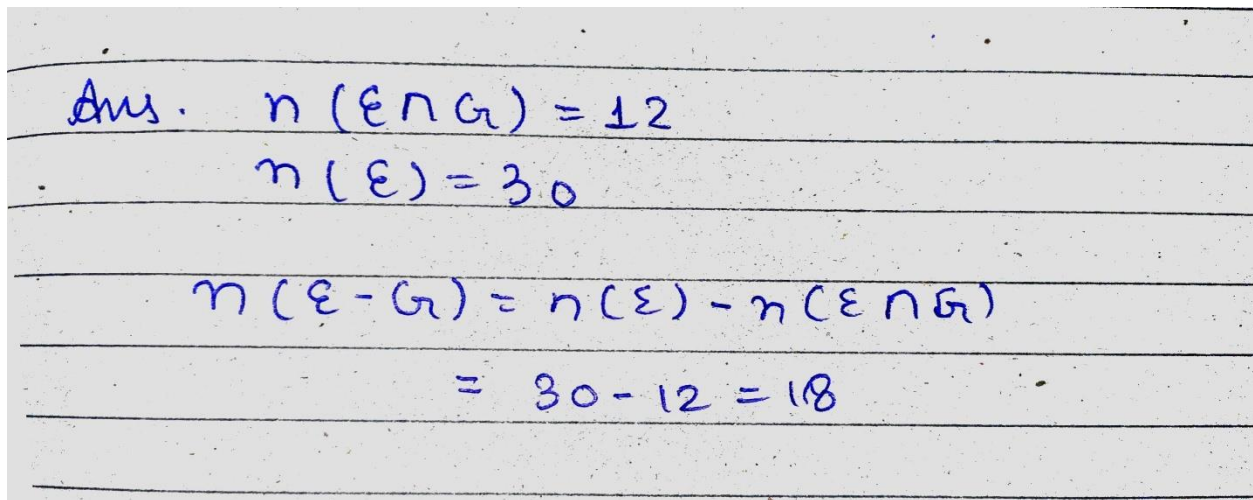 Ans. n (ε ∩ G) = 12
n (ε) = 30
n (ε - G) = n (ε) - n (ε ∩ G)
= 30 - 12 = 18